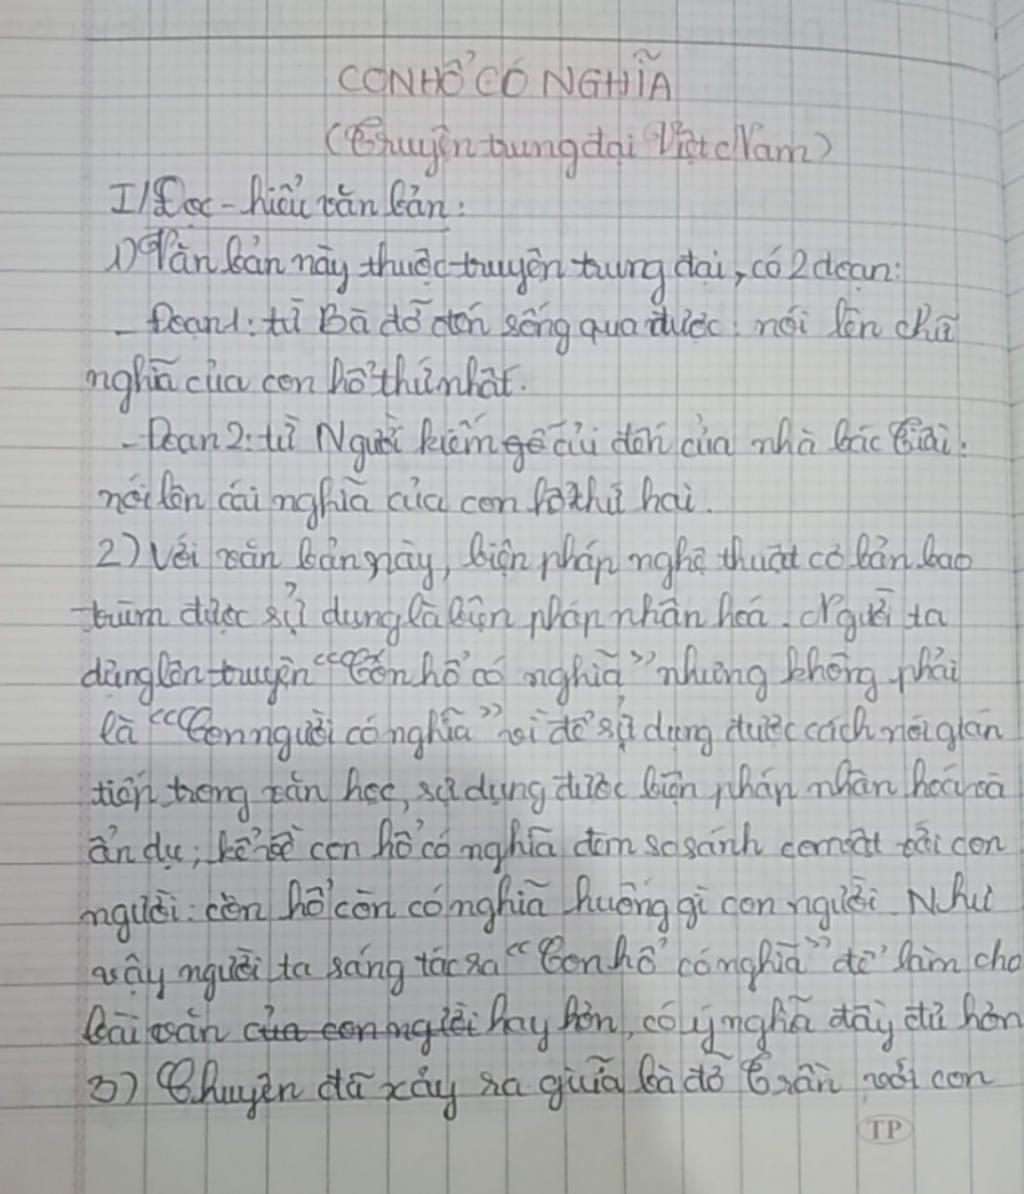 CON HỔ CÓ NGHĨA
(Truyện trung đại Việt Nam)
I/ Đọc - hiểu văn bản:
1) Văn bản này thuộc truyện trung đại, có 2 đoạn:
- Đoạn 1: từ Bà đỡ đến sống qua được: nói lên chữ
nghĩa của con hổ thứ nhất.
- Đoạn 2: từ Người kiếm củi đến của nhà bác Tiều:
nói lên cái nghĩa của con hổ thứ hai.
2) Với văn bản này, biện pháp nghệ thuật cơ bản bao
trùm được sử dụng là biện pháp nhân hoá. Người ta
dựng lên truyện "Con hổ có nghĩa" nhưng không phải
là "Con người có nghĩa" vì để sử dụng được cách nói gián
tiếp trong văn học, sử dụng được biện pháp nhân hoá và
ẩn dụ; kể về con hổ có nghĩa đem so sánh với con
người: còn hổ còn có nghĩa huống gì con người. Như
vậy người ta sáng tác ra "Con hổ có nghĩa" để làm cho
bài văn của con người hay hơn, có ý nghĩa đầy đủ hơn
3) Chuyện đã xảy ra giữa bà đỡ Trần với con
TP